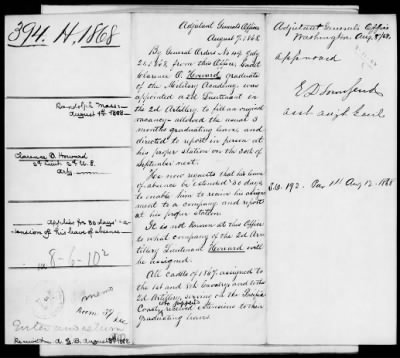 394. H, 1868
Randolph Mass
August 4th 1868
Clarence O. Howard
2d Lieut. 2d U.S.
Art'y
Applies for 30 days' ex-
tension of his leave of absence
8-6-10
memo
Room
Enter and return
A.G.O. August 1868
Adjutant General's Office
August 7, 1868.
By General Orders No 49 July
1868, from this Office, Cadet
Clarence O. Howard, graduate
of the Military Academy, was
appointed 2d Lieutenant in
the 2d Artillery, to fill an original
vacancy, allowed the usual 3
months graduating leave, and
directed to report in person at
his proper station on the 30th of
September next.
He now requests that his leave
of absence be extended 30 days
to enable him to receive his assign-
ment to a company and report
at his proper station.
It is not known at this Office
to what company of the 2d Ar-
tillery Lieutenant Howard will
be assigned.
All cadets of 1867, assigned to
the 1st and 8th Cavalry and to the
2d Artillery, serving on the Pacific
Coast, who applied, received extensions to their
graduating leaves.
Adjutant General's Office
Washington Aug. 8/68.
Approved
E D Townsend
Asst adjt Genl
S.O. 192. Par 14 Aug 12. 1868